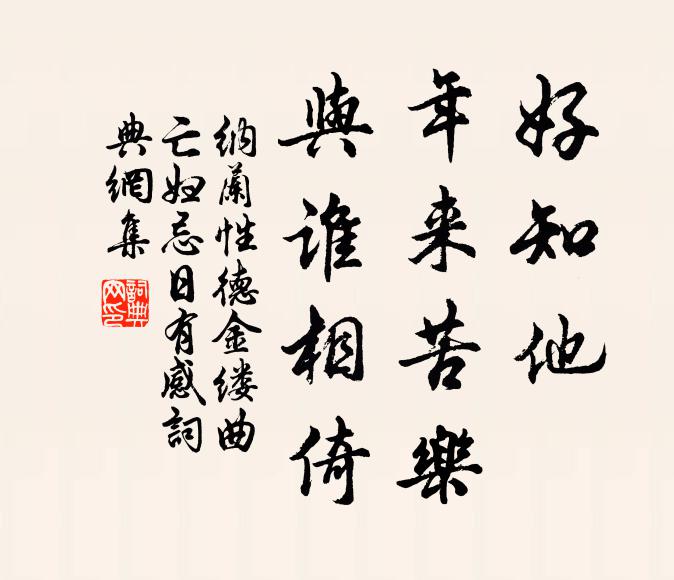 好知他
年来苦樂
與谁相倚
纳蘭性德金缕曲
亡妇忌日有感詞
典網集
詞典
网印